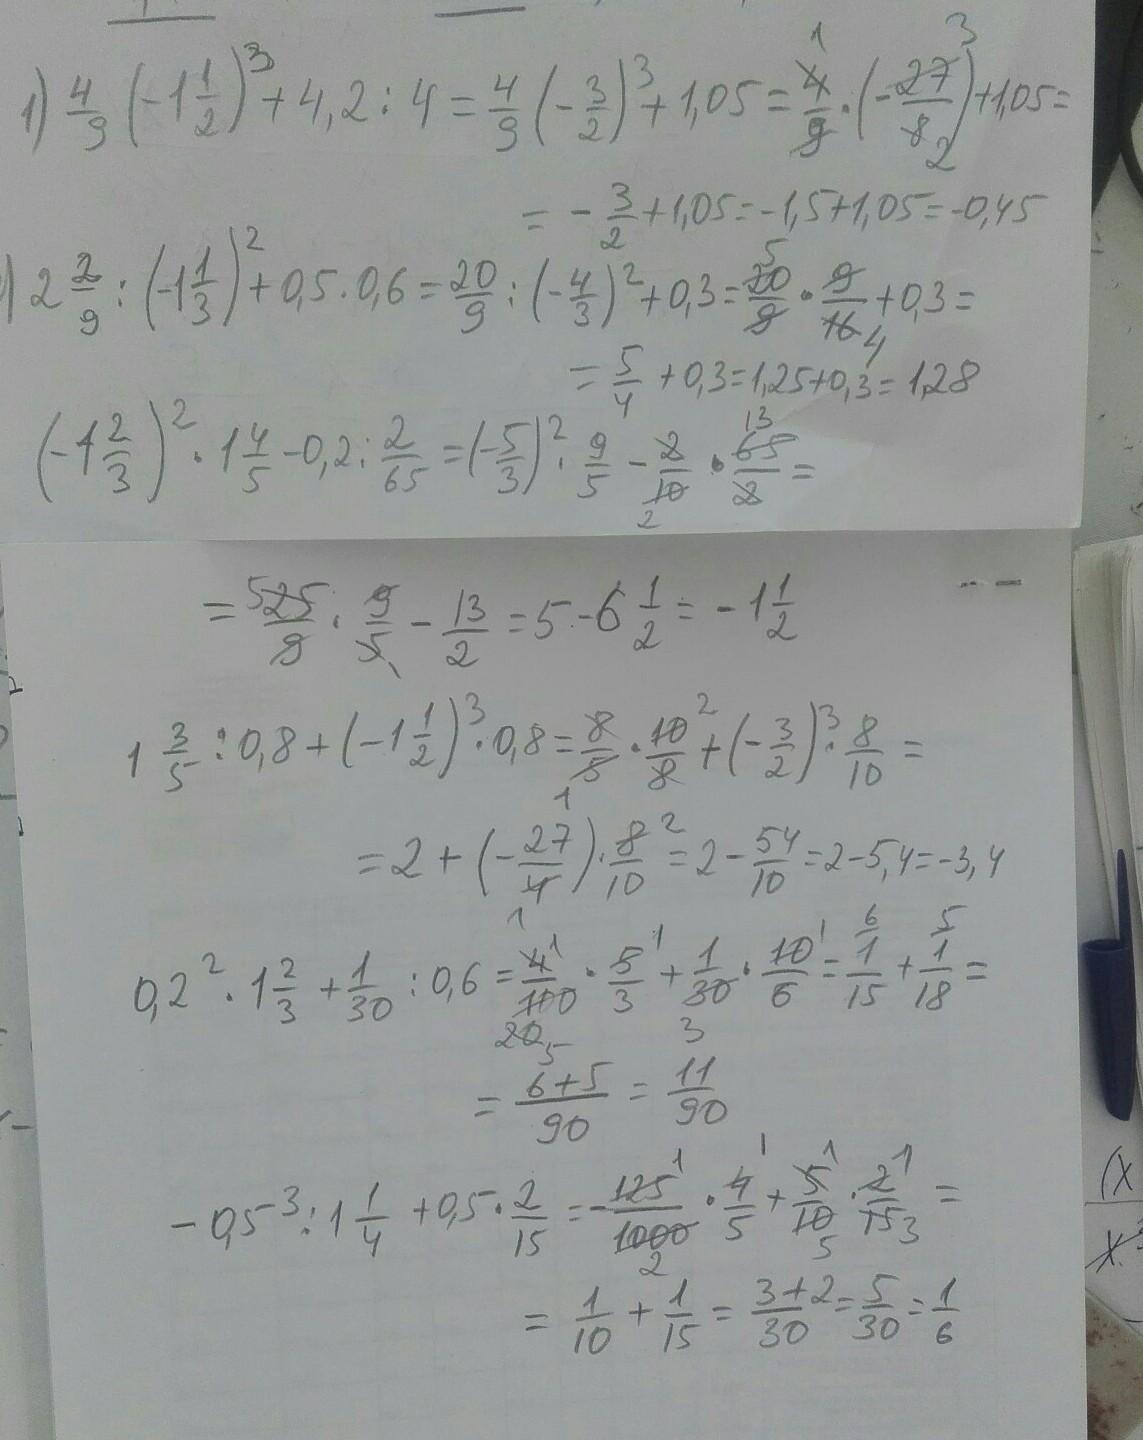 1) 4/9 (-1 1/2)^3 + 4,2 : 4 = 4/9 (-3/2)^3 + 1,05 = 4/9 · (-27/8) + 1,05 =
= -3/2 + 1,05 = -1,5 + 1,05 = -0,45
) 2 2/9 : (-1 1/3)^2 + 0,5 · 0,6 = 20/9 : (-4/3)^2 + 0,3 = 20/9 · 9/16 + 0,3 =
= 5/4 + 0,3 = 1,25 + 0,3 = 1,28
(-1 2/3)^2 · 1 4/5 - 0,2 : 2/65 = (-5/3)^2 · 9/5 - 2/10 · 65/2 =
= 25/9 · 9/5 - 13/2 = 5 - 6 1/2 = -1 1/2
1 3/5 : 0,8 + (-1 1/2)^3 · 0,8 = 8/5 · 10/8 + (-3/2)^3 · 8/10 =
= 2 + (-27/4) · 8/10 = 2 - 54/10 = 2 - 5,4 = -3,4
0,2^2 · 1 2/3 + 1/30 : 0,6 = 4/100 · 5/3 + 1/30 · 10/6 = 1/15 + 1/18 =
= (6+5)/90 = 11/90
-0,5^3 : 1 1/4 + 0,5 · 2/15 = -125/1000 · 4/5 + 5/10 · 2/15 =
= 1/10 + 1/15 = (3+2)/30 = 5/30 = 1/6